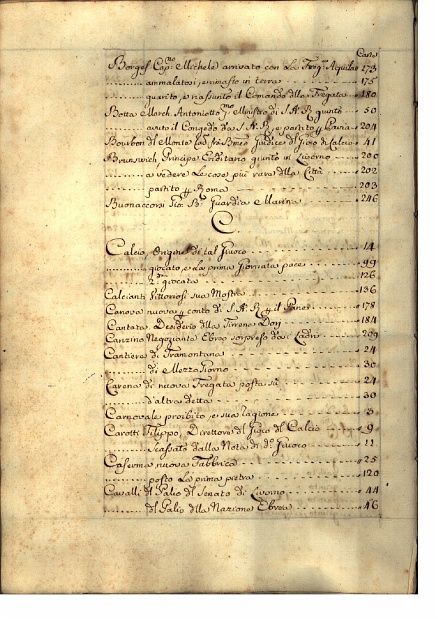 Carte
Borges Cap.no Michele arrivato con la Freg.a Aquila 173
ammalatosi, e rimasto in terra 175
guarito, e riassunto il Comando dlla Fregata 180
Botta March. Antoniotto p.mo Ministro di S. A. R. giunto 50
avuto il Congedo da S. A. R. e partito p Pavia 204
Bourbon dl Monte Giudice dl Gioco di Calcio 41
Brunswich, Principe Ereditario giunto in Livorno 200
a vedere le cose più rare dlla Città 202
partito p Roma 203
Buonaccorsi Gio. Ba. Guardia Marina 246
C.
Calcio, Origine di tal Giuoco 14
giocato, e la prima Giornata pace 99
2.a giocata 126
Calcianti Vittoriosi sua Mostra 136
Canova nuova p conto di S. A. R. p il Pane 178
Cantata, Desiderio dlla Terrena 184
Canzino Negoziante Ebreo sorpreso da Ladri 209
Cantiere di Tramontana 24
di Mezzo Giorno 30
Carena di nuova Fregata posta sù 24
d'altra detta 30
Carnovale proibito, e sua cagione 3
Carotti Filippo, Direttore dl Gioco dl Calcio 9
scassato dalla Nota di d.o Giuoco 11
Caserma nuova Fabbrica 25
posto la prima pietra 120
Cavalli dl Palio dl Senato di Livorno 44
dl Palio dlla Nazione Ebrea 46